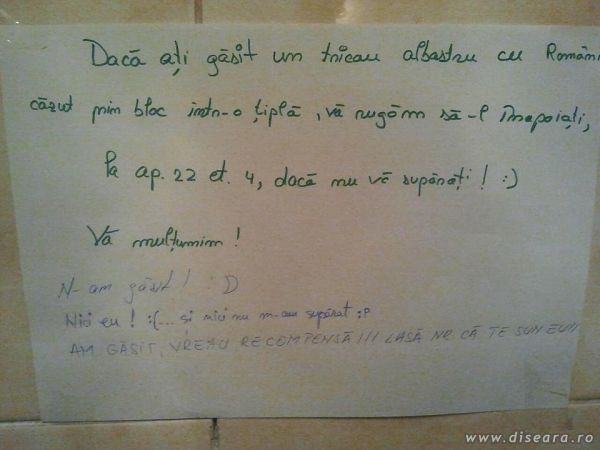 Dacă ați găsit un tricou albastru cu Români
căzut prin bloc intr-o țiplă, vă rugăm să-l înapoiați,
la ap. 22 et. 4, dacă nu vă supărați! :)
Vă mulțumim!
N-am găsit! :D
Nici eu! :(... și nici nu m-am supărat :P
AM GĂSIT, VREAU RECOMPENSĂ!!! LASĂ NR. CĂ TE SUN EU!!
www.diseara.ro